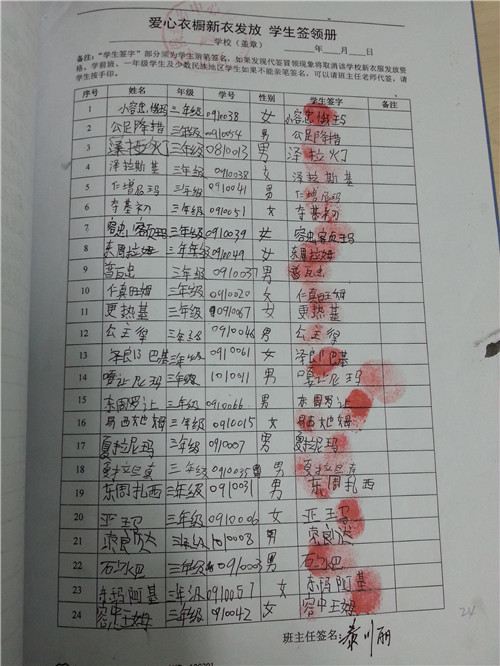 爱心衣橱新衣发放 学生签领册
学校（盖章） 年 月 日
备注：“学生签字”部分须为学生亲笔签名，如果发现代签冒领现象将取消该学校新衣服发放资
格，学前班、一年级学生及少数民族地区学生如果不能亲笔签名，可以请班主任老师代签，请
学生按手印。
序号 姓名 年级 学号 性别 学生签字 备注
1 三年级 0910038 女
2 公足降措 三年级 0910054 男 公足降措
3 泽拉火丁 三年级 0810013 男 泽拉火丁
4 泽拉斯基 三年级 0910038 女 泽拉斯基
5 仁增尼玛 三年级 0910041 男 仁增尼玛
6 夺基初 三年级 0910051 女 夺基初
7 三年级 0910039 女
8 东周拉姆 三年级 0910049 女 东周拉姆
9 普瓦忠 三年级 0910037 男 普瓦忠
10 仁真旺姆 三年级 0910020 女 仁真旺姆
11 更热基 三年级 0910067 女 更热基
12 三年级 0910046 男
13 三年级 0910061 女
14 嘎让尼玛 三年级 1010011 男 嘎让尼玛
15 东周罗让 三年级 0910066 男 东周罗让
16 三年级 0910015 女
17 夏拉尼玛 三年级 091007 男 夏拉尼玛
18 三年级 0910035 男
19 东周扎西 三年级 0910031 男 东周扎西
20 亚玛 三年级 0910006 女 亚玛
21 三年级 1010008 男
22 三年级 0910003 男
23 东玛阿基 三年级 0910057 女 东玛阿基
24 容中王姆 三年级 0910042 女 容中王姆
24
班主任签名：